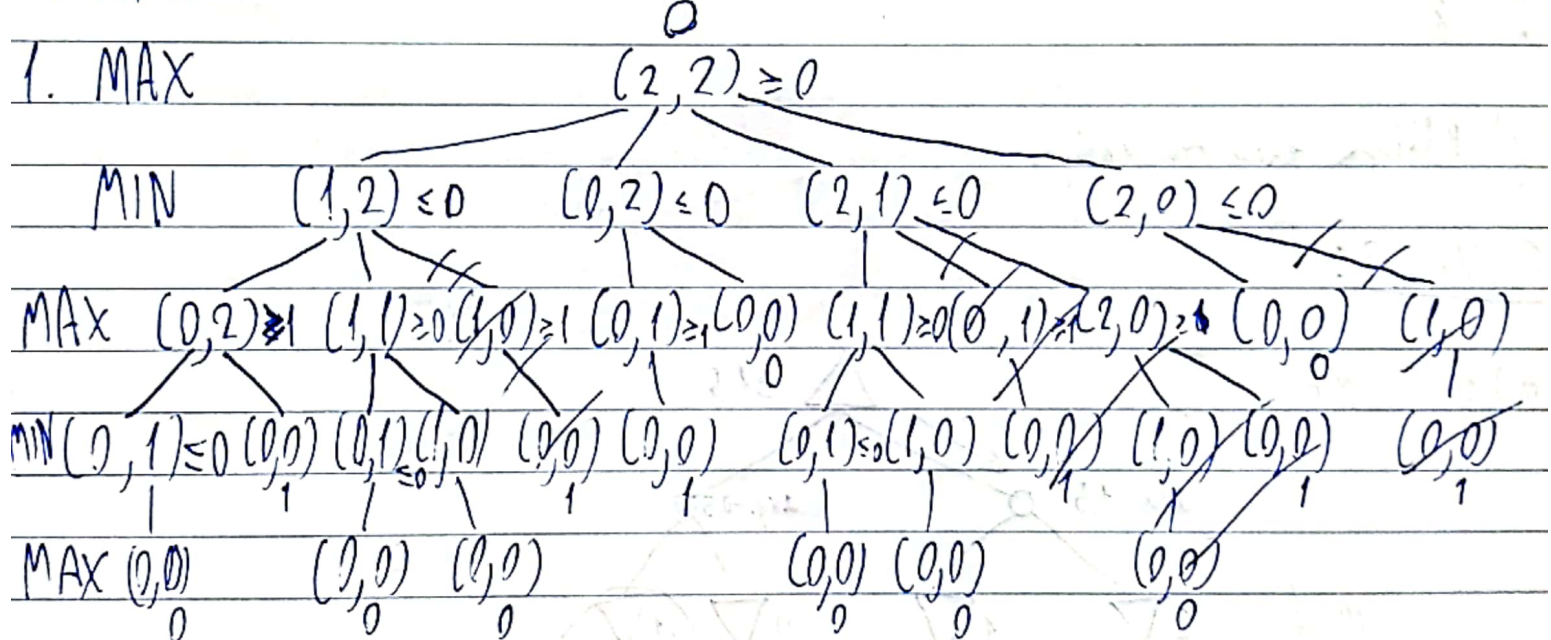 0
1. MAX (2,2) ≥0
MIN (1,2) ≤0 (0,2) ≤0 (2,1) ≤0 (2,0) ≤0
MAX (0,2) ≥1 (1,1) ≥0 (1,0) ≥1 (0,1) ≥1 (0,0) (1,1) ≥0 (0,1) ≥1 (2,0) ≥1 (0,0) (1,0)
0 0
MIN (0,1) ≤0 (0,0) (0,1) ≤0 (1,0) (0,0) (0,0) (0,1) ≤0 (1,0) (0,0) (1,0) (0,0) (0,0)
1 1 1 1 1 1
MAX (0,0) (0,0) (0,0) (0,0) (0,0) (0,0)
0 0 0 0 0 0